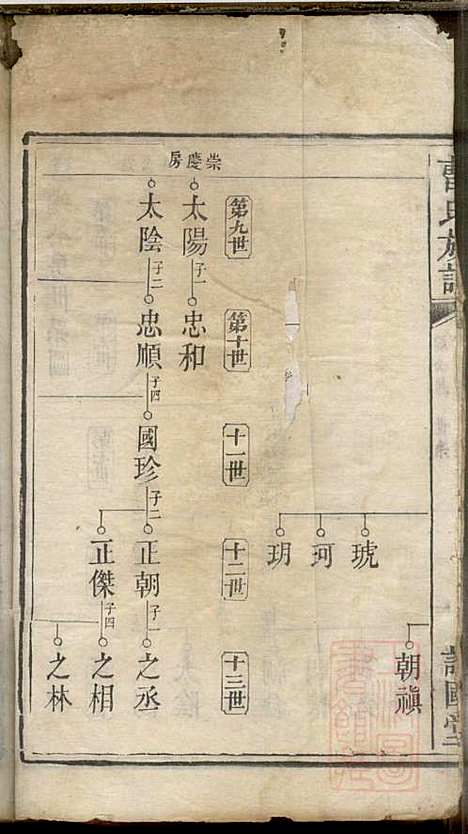 曹氏族譜
朝禛
琥
珂
玥
第九世
第十世
十一世
十二世
十三世
崇慶房
太陽 子一
忠和
太陰 子二
忠順 子四
國珍 子二
正朝 子一
之丞
正傑 子四
之相
之林